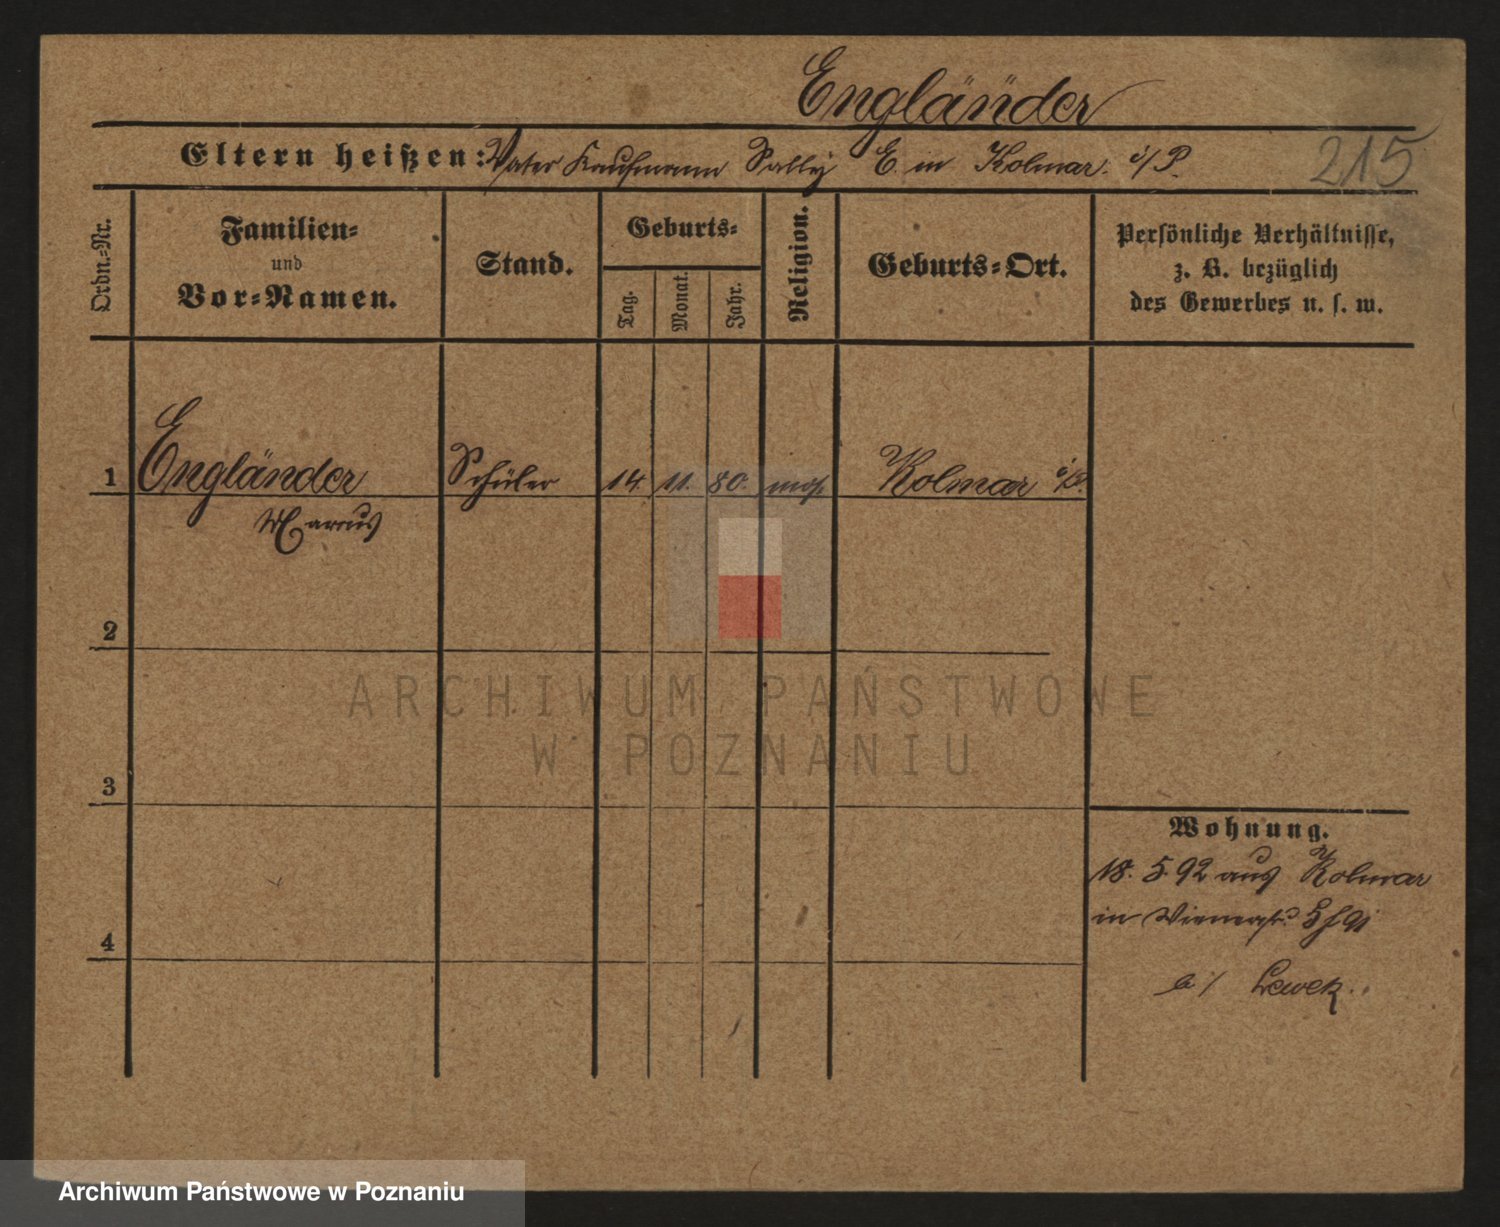 Engländer
Eltern heißen: Vater Kaufmann Sally E. in Kolmar i/P.
215
Ordn.-Nr.
Familien-
und
Vor-Namen.
Stand.
Geburts-
Tag.
Monat.
Jahr.
Religion.
Geburts-Ort.
Persönliche Verhältnisse,
z. B. bezüglich
des Gewerbes u. s. w.
1 Engländer Schüler 14. 11. 80. mos. Kolmar i/P.
Marcus
2
3
4
Wohnung.
18. 5. 92 aus Kolmar
in Wienerstr.
b/ Lewek.
ARCHIWUM PAŃSTWOWE
W POZNANIU
Archiwum Państwowe w Poznaniu